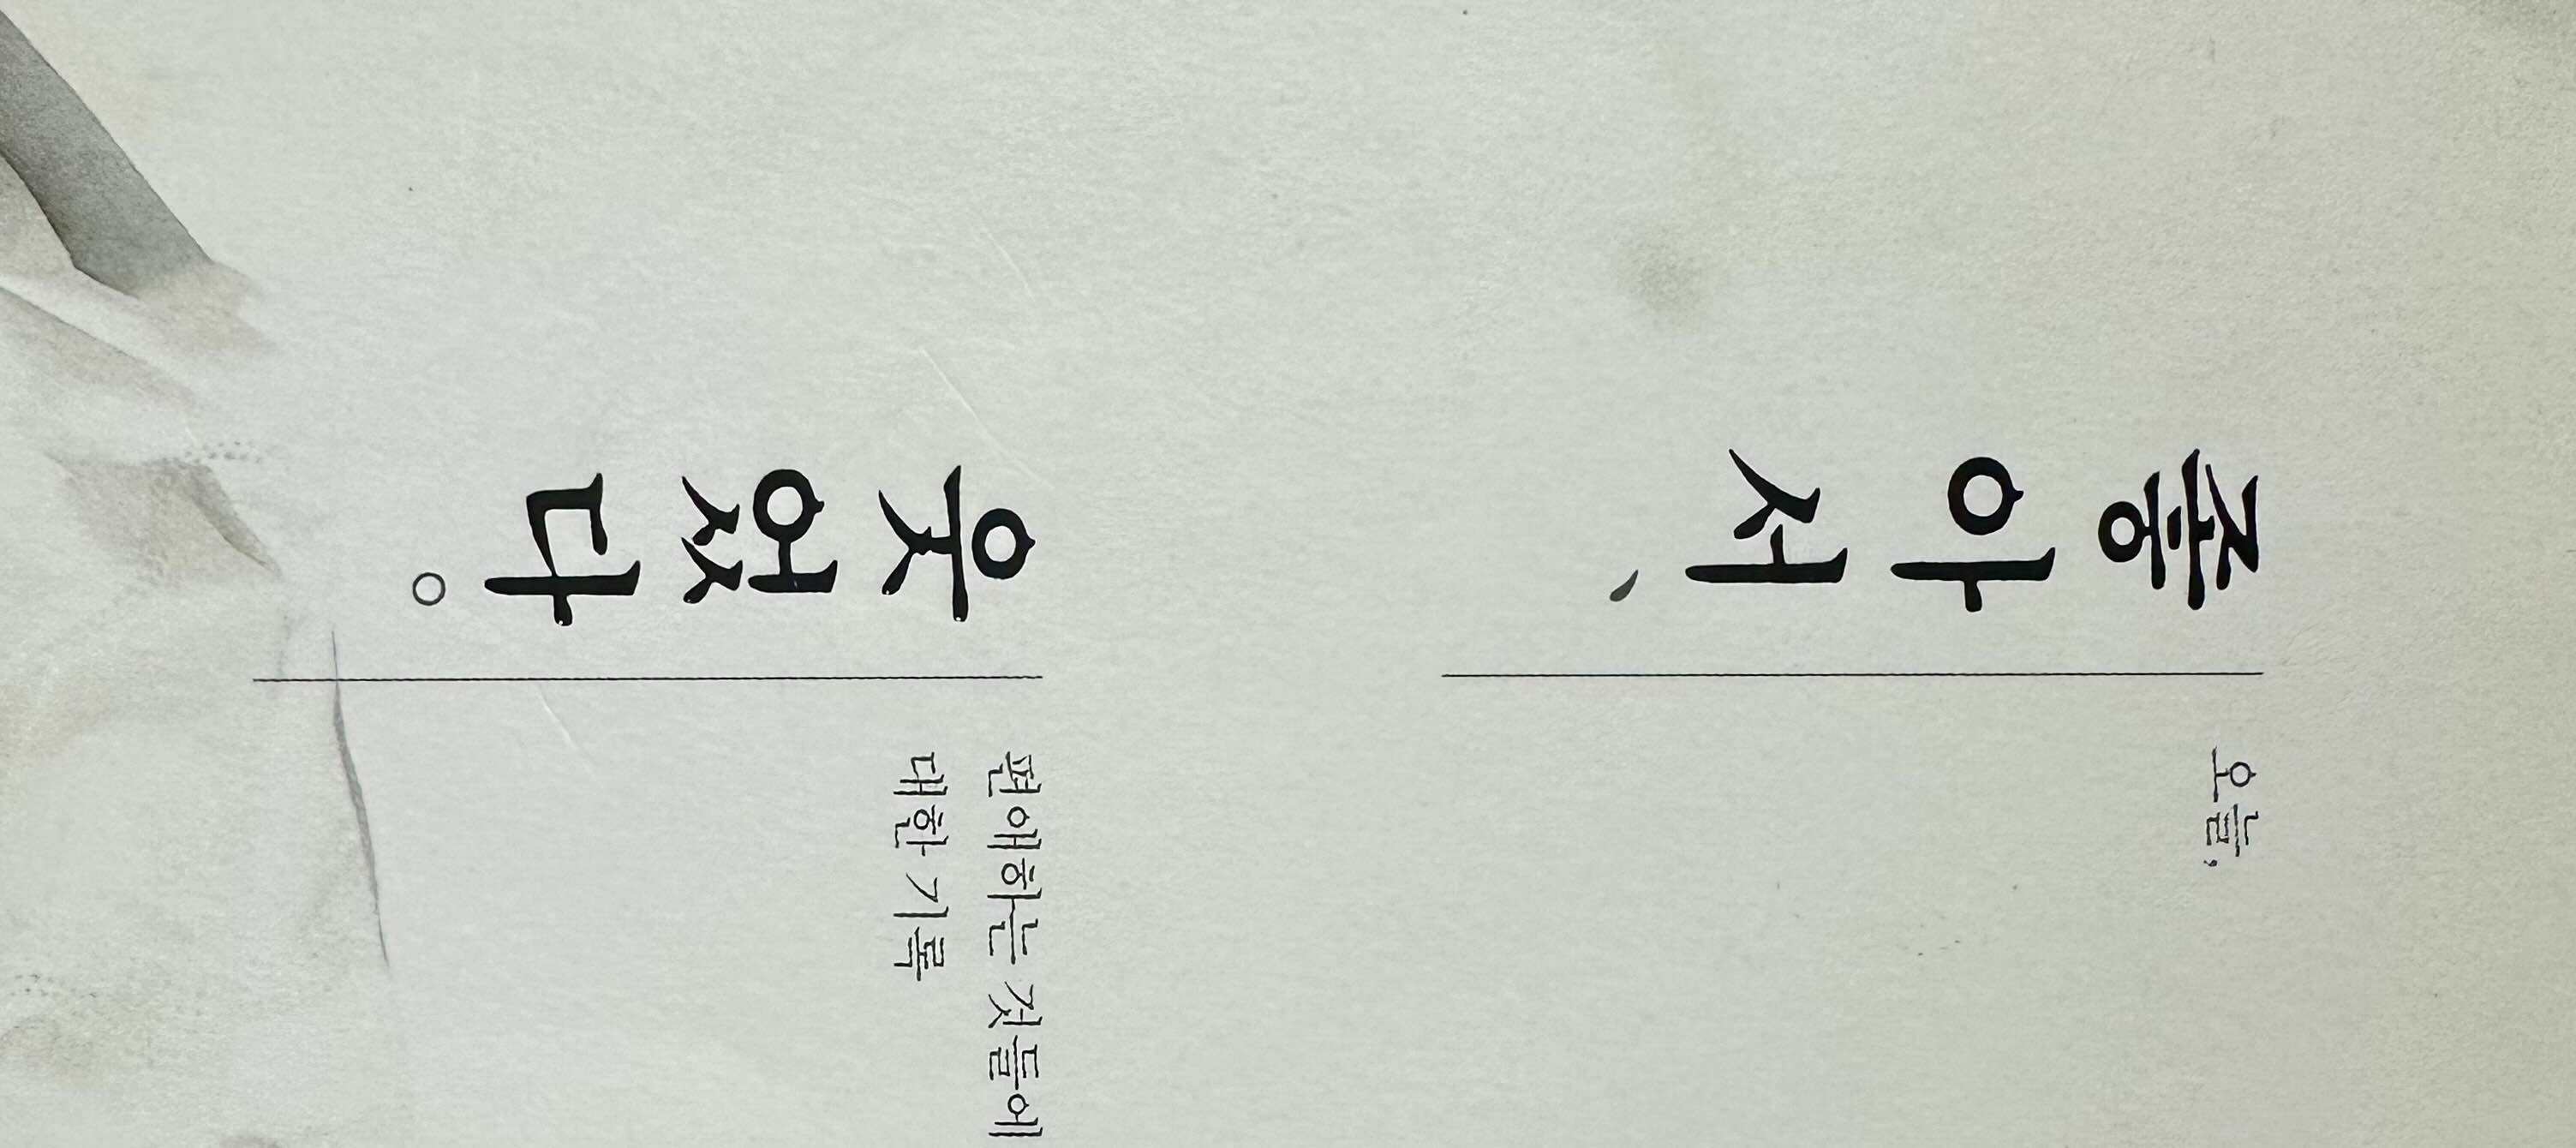 좋아서、
오늘,
웃었다。
편애하는 것들에
대한 기록